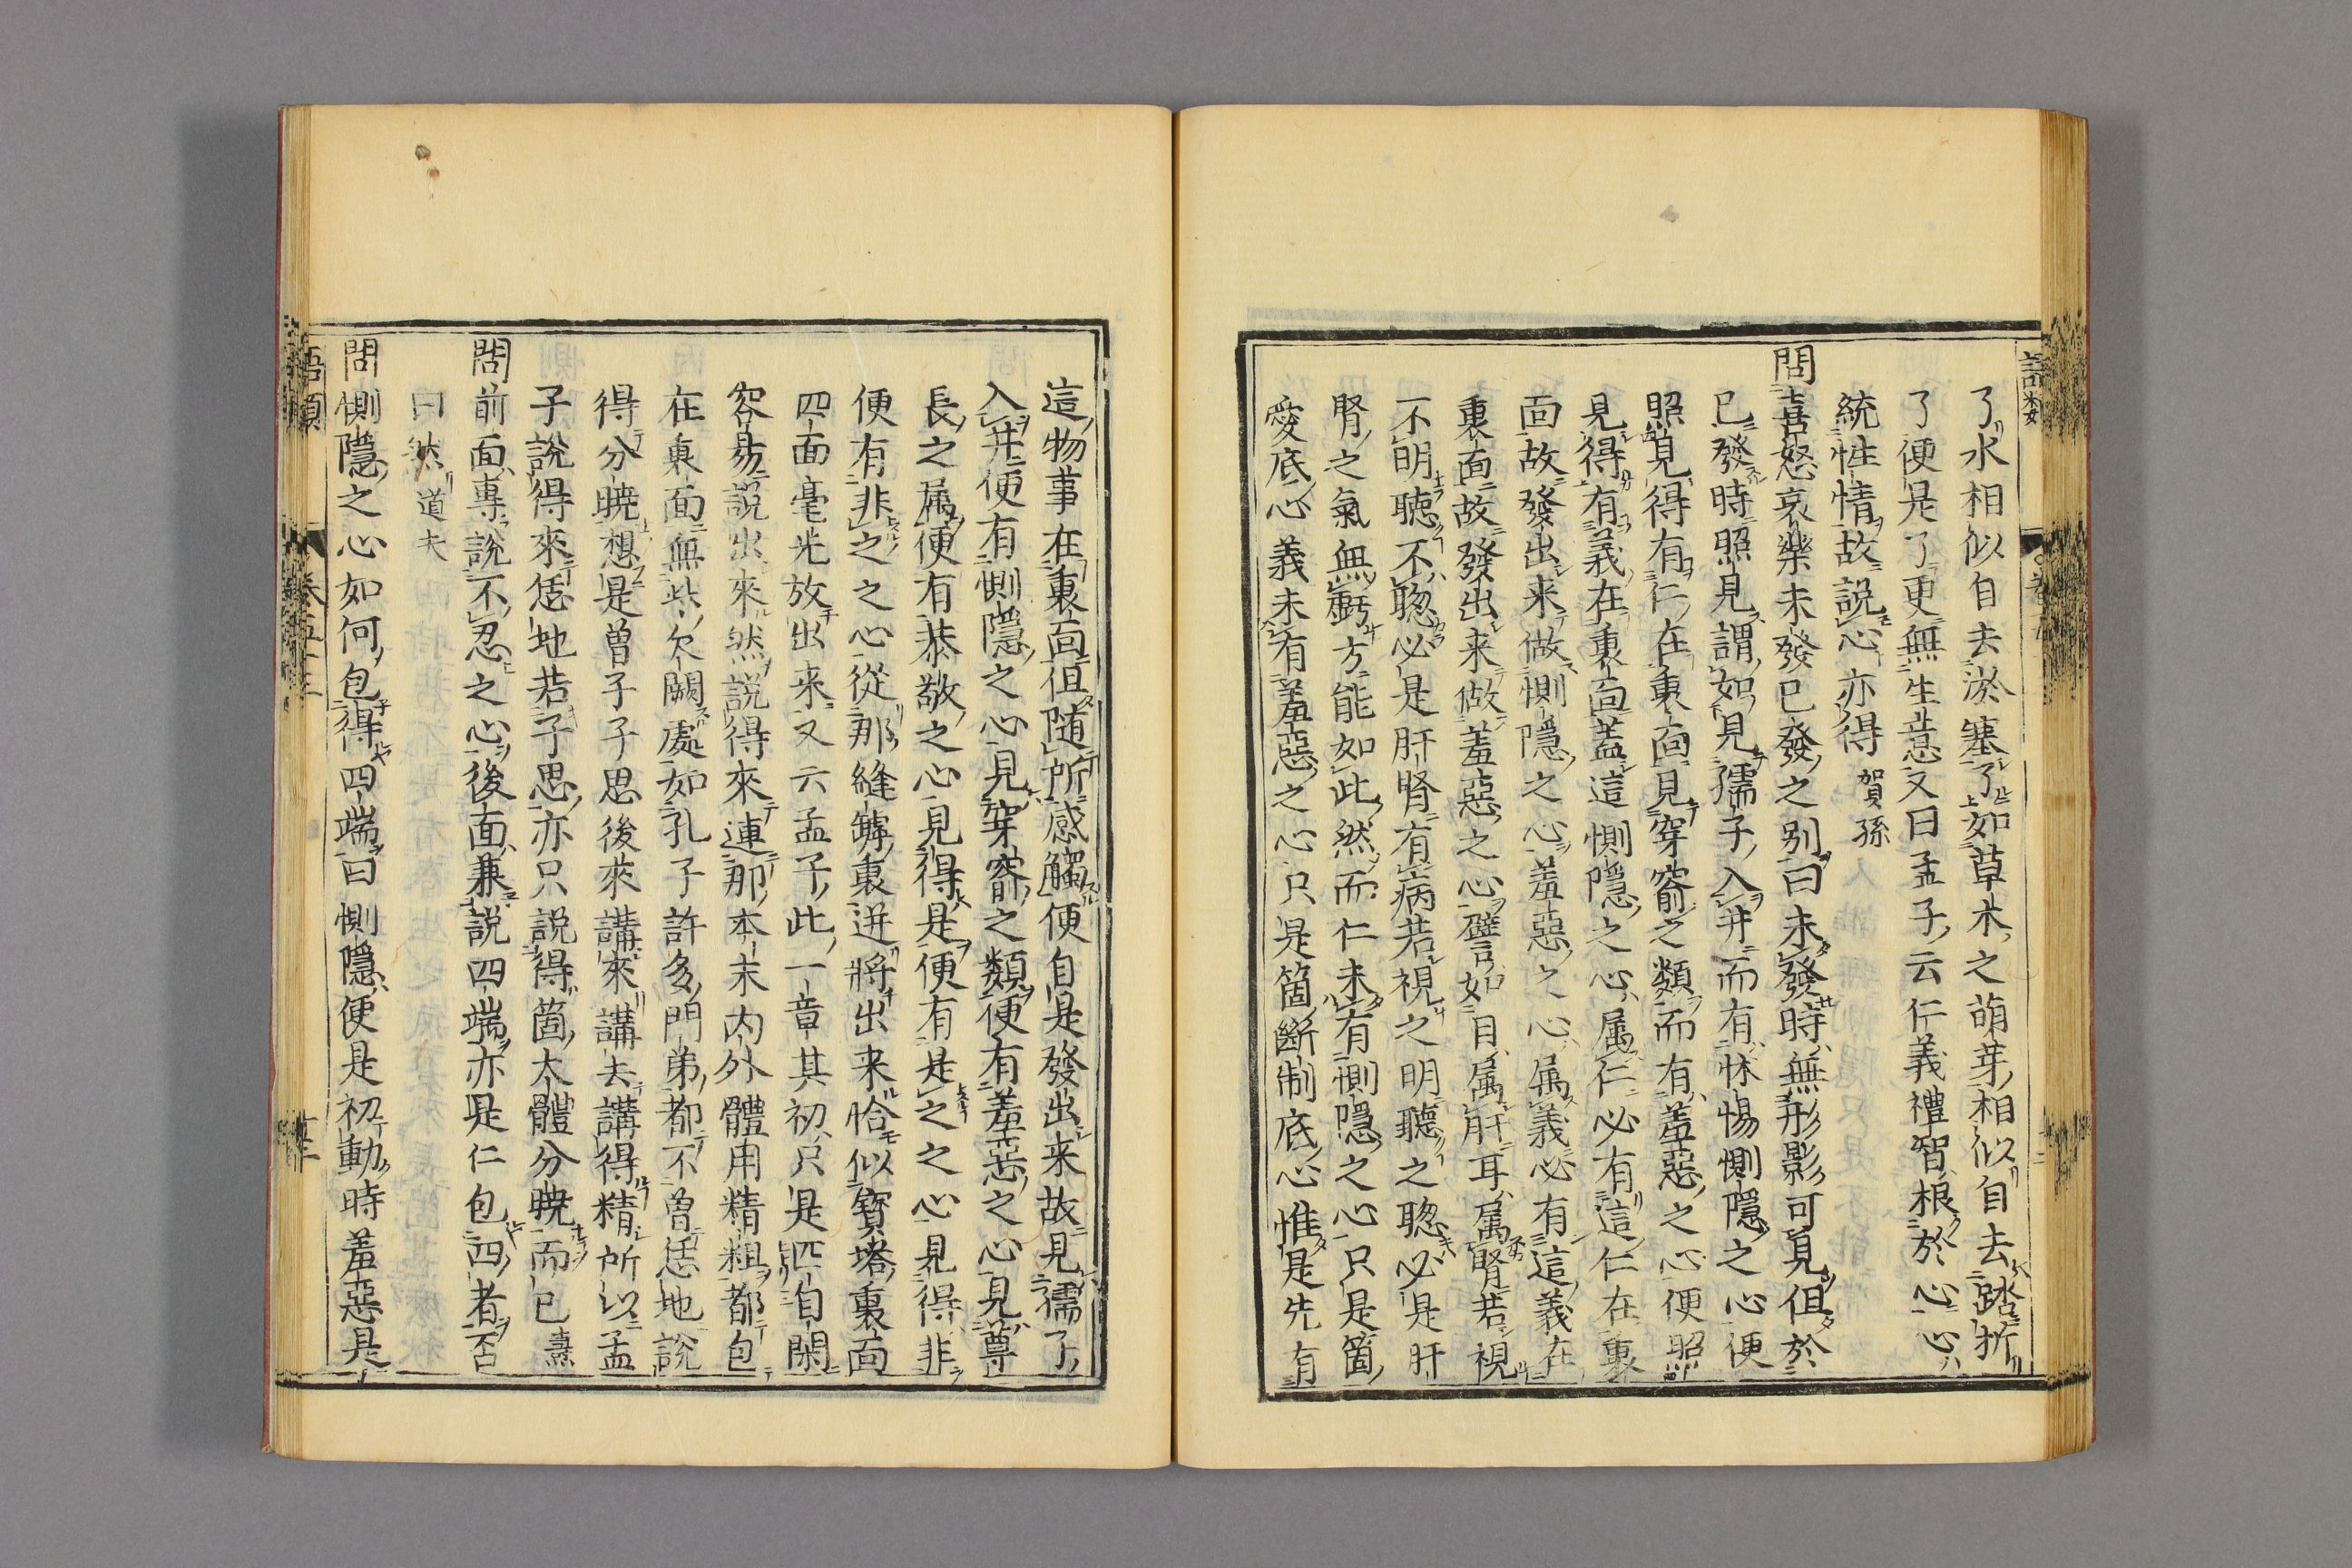 了水相似自去淤塞了如草木之萌芽相似自去踏折
了便是了更無生意又曰孟子云仁義禮智根於心心
統性情故說心亦得 賀孫
問喜怒哀樂未發已發之别曰未發時無形影可見但於
已發時照見謂如見孺子入井而有怵惕惻隱之心便
照見得有仁在裏面見穿窬之類而有羞惡之心便照
見得有義在裏面蓋這惻隱之心属仁必有這仁在裏
面故發出来做惻隱之心羞惡之心属義必有這義在
裏面故發出来做羞惡之心譬如目属肝耳属腎若視
不明聽不聡必是肝腎有病若視之明聽之聡必是肝
腎之氣無虧方能如此然而仁未有惻隱之心只是箇
愛底心義未有羞惡之心只是箇斷制底心惟是先有
這物事在裏面但随所感觸便自是發出来故見孺子
入井便有惻隱之心見穿窬之類便有羞惡之心見尊
長之属便有恭敬之心見得是便有是之之心見得非
便有非之之心從那縫罅裏迸將出来恰似寳塔裏面
四面毫光放出来又云孟子此一章其初只是匹自閑
容易說出來然說得來連那本末内外體用精粗都包
在裏面無些欠闕處如孔子許多門弟都不曽恁地說
得分曉想是曽子子思後來講來講去講得精所以孟
子說得來恁地若子思亦只説得箇大體分曉而已 燾
問前面專說不忍之心後面兼説四端亦是仁包四者否
曰然 道夫
問惻隱之心如何包得四端曰惻隱便是初動時羞惡是
語類 卷五十三 十三